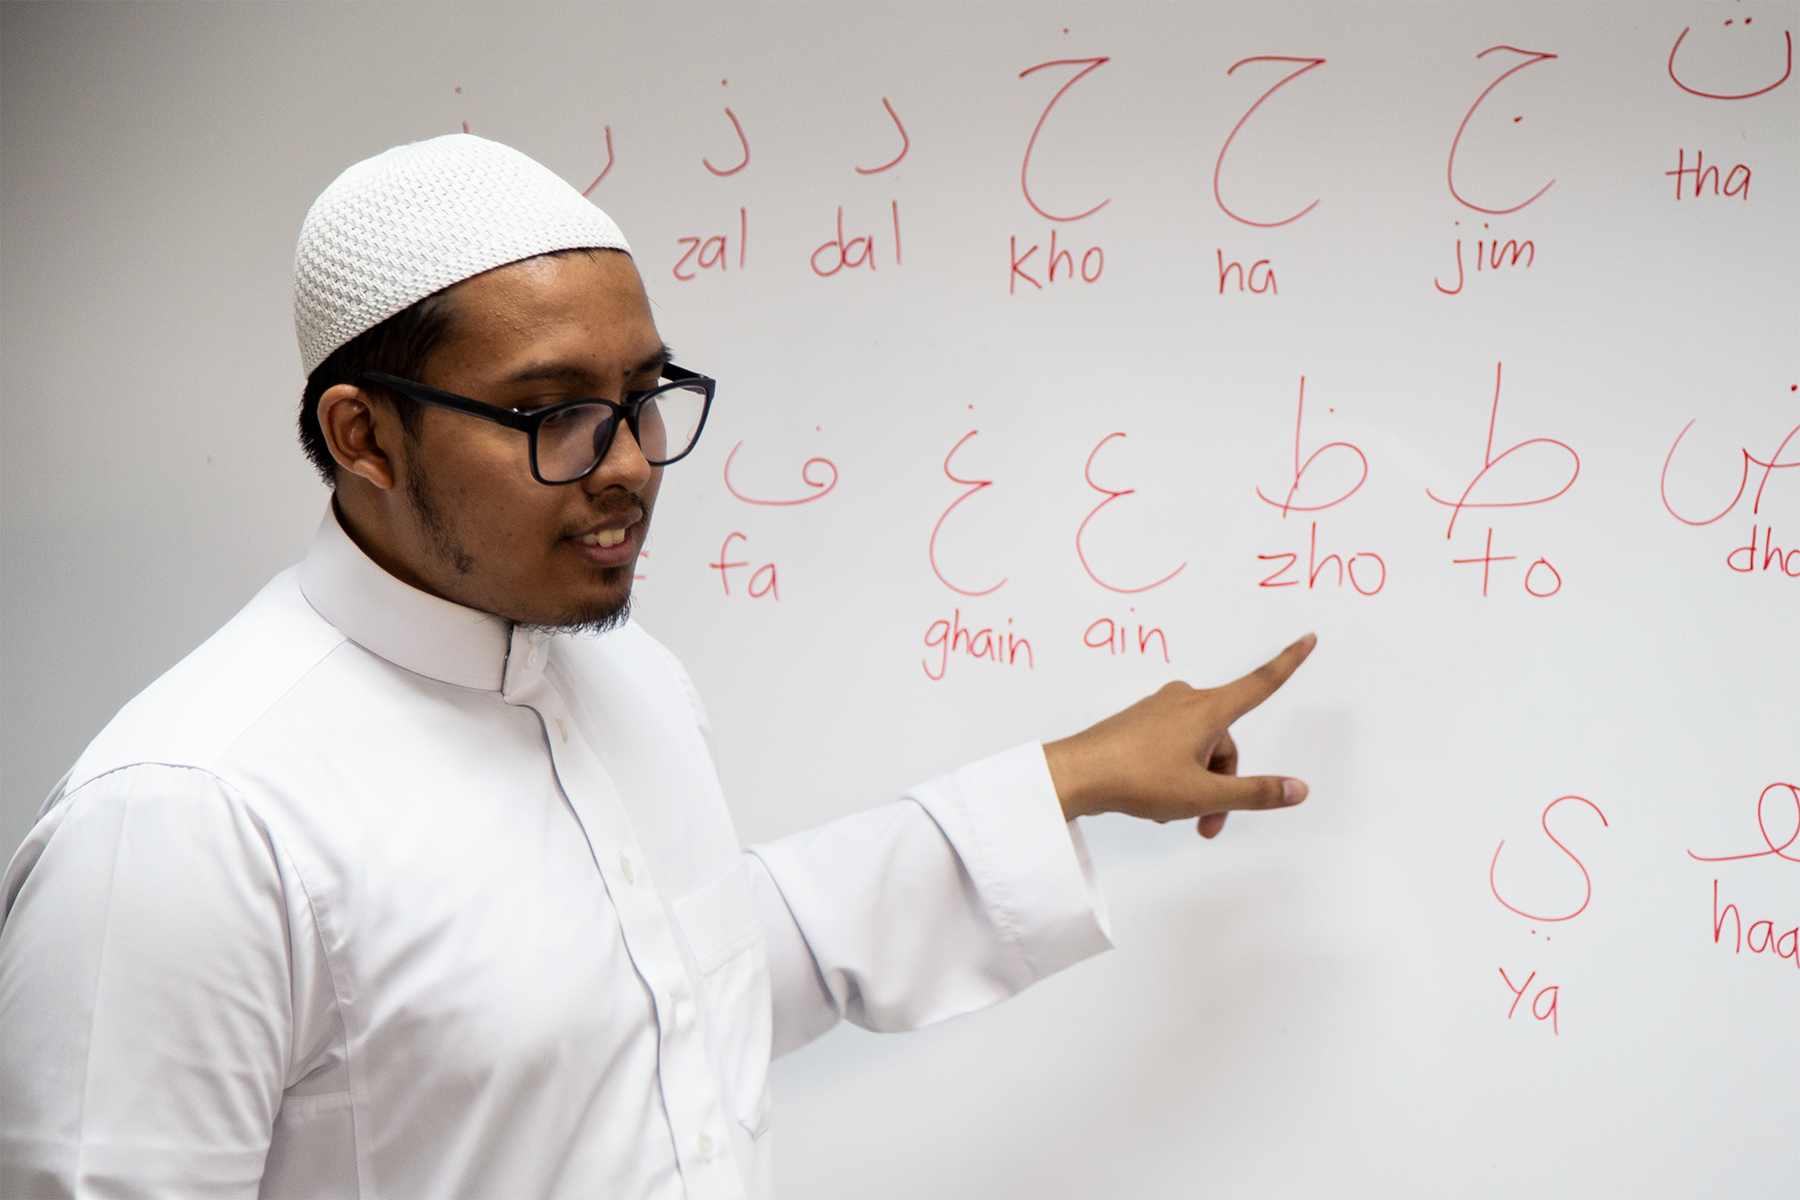 ث ج ح خ د ذ ر
tha jim ha kho dal zal
ض ط ظ ع غ ف
to zho ain ghain fa
ي
ya